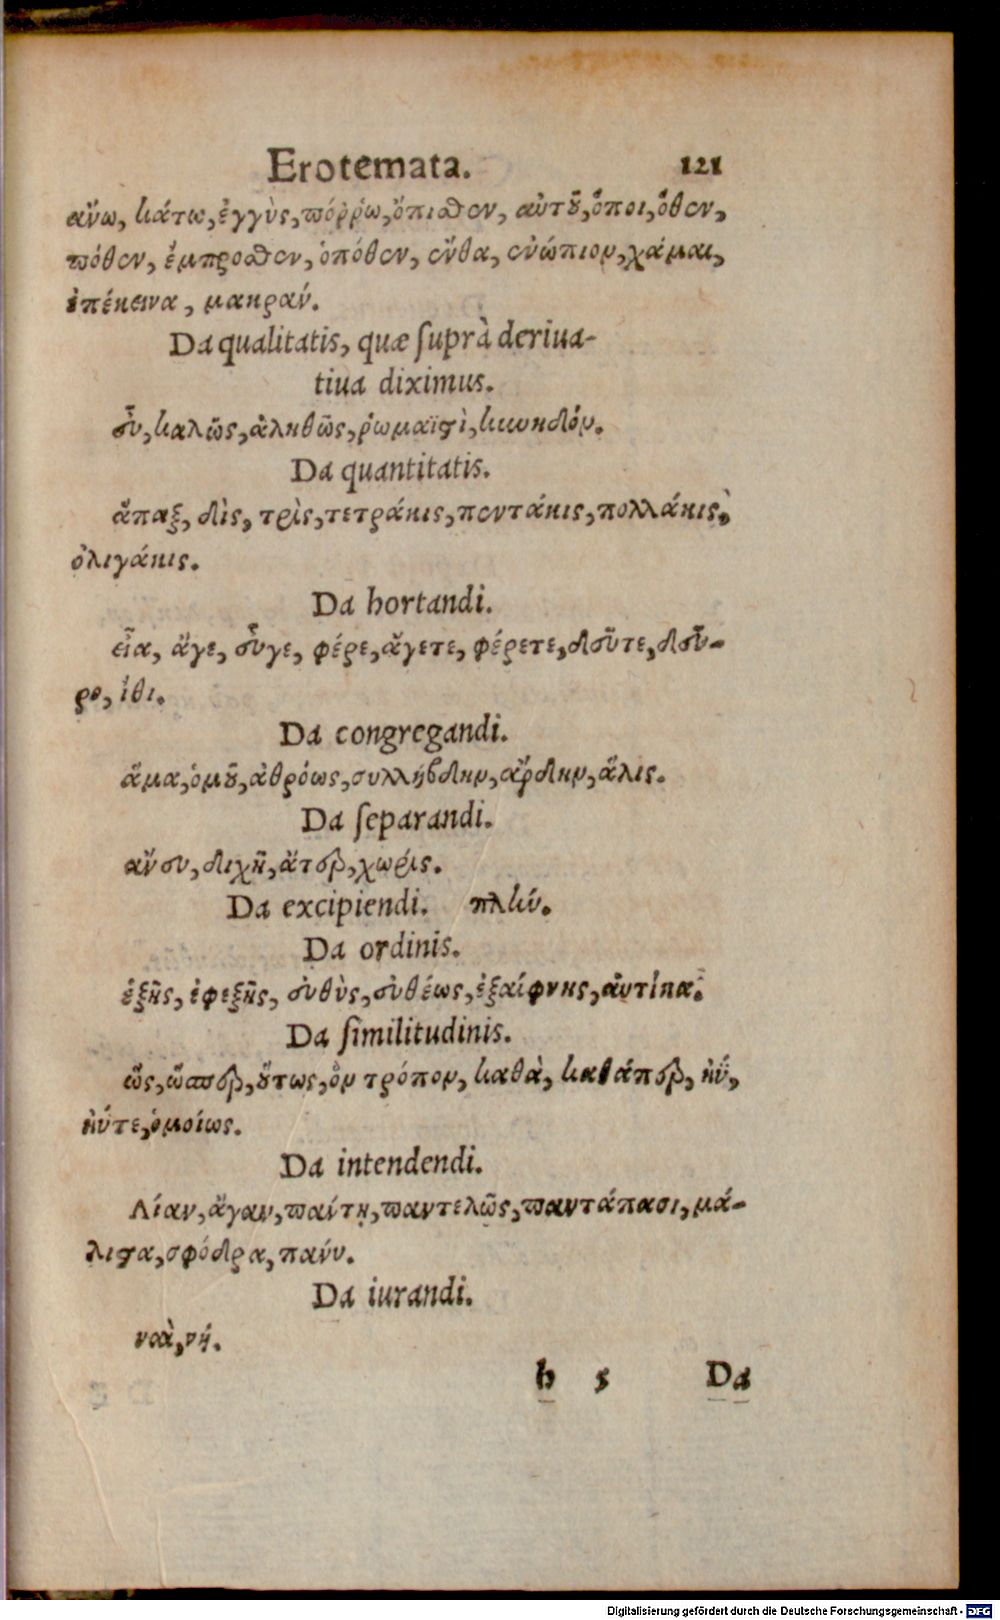 Erotemata. 121
ἄνω, κάτω, ἐγγὺς, πόῤῥω, ὄπισθεν, αὐτοῦ, ὅποι, ὅθεν,
πόθεν, ἔμπροσθεν, ὁπόθεν, ἔνθα, ἐνώπιον, χάμαι,
ἐπέκεινα, μακράν.
Da qualitatis, quæ ſuprà deriua-
tiua diximus.
εὖ, καλῶς, ἀληθῶς, ῥωμαϊστὶ, κυνηδόν.
Da quantitatis.
ἅπαξ, δὶς, τρὶς, τετράκις, πεντάκις, πολλάκις,
ὀλιγάκις.
Da hortandi.
εἶα, ἄγε, εὖγε, φέρε, ἄγετε, φέρετε, δεῦτε, δεῦ-
ρο, ἴθι.
Da congregandi.
ἅμα, ὁμοῦ, ἀθρόως, συλλήβδην, ἄρδην, ἅλις.
Da ſeparandi.
ἄνευ, διχῆ, ἄτερ, χωρίς.
Da excipiendi. πλήν.
Da ordinis.
ἑξῆς, ἐφεξῆς, εὐθὺς, εὐθέως, ἐξαίφνης, αὐτίκα.
Da ſimilitudinis.
ὥς, ὥσπερ, οὕτως, ὃν τρόπον, καθὰ, καθάπερ, ἠΰ,
ἠύτε, ὁμοίως.
Da intendendi.
Λίαν, ἄγαν, πάντη, παντελῶς, παντάπασι, μά-
λιστα, σφόδρα, πάνυ.
Da iurandi.
ναὰ, νή.
h 5 Da
Digitalisierung gefördert durch die Deutsche Forschungsgemeinschaft - DFG